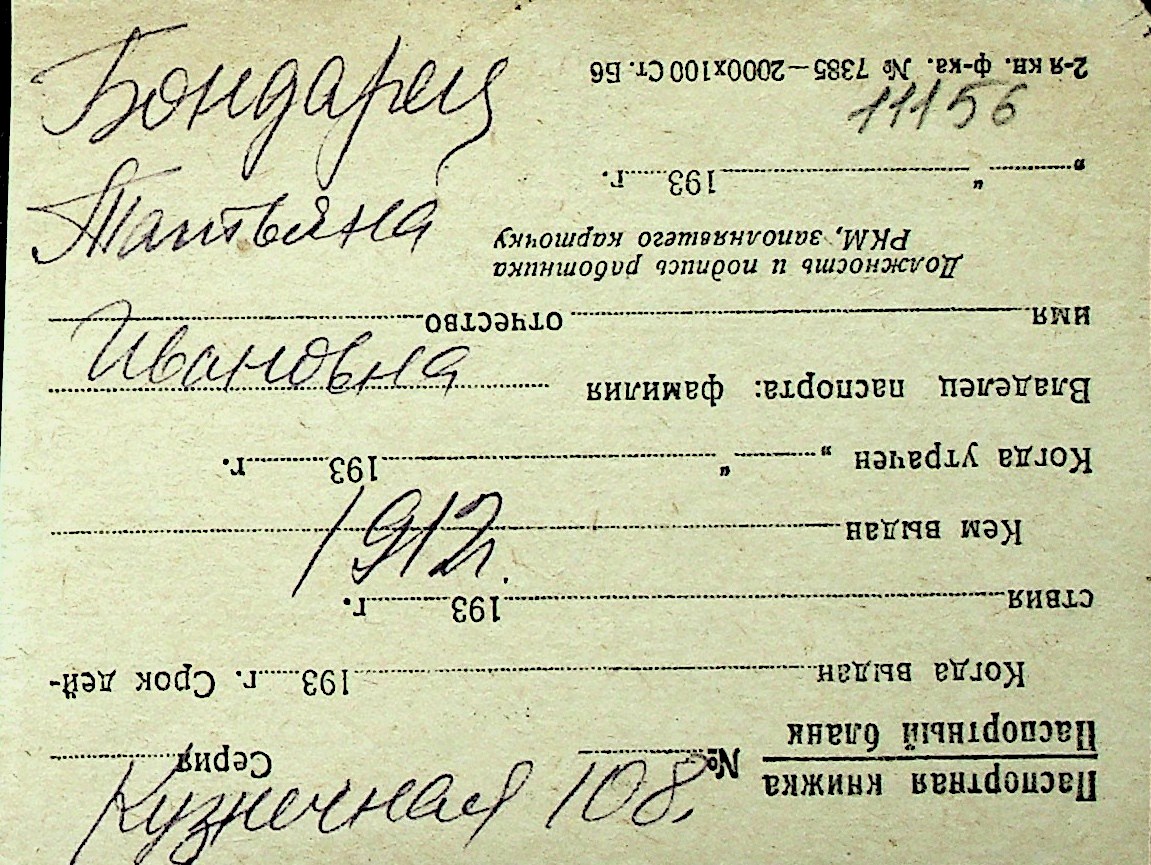 Бондарец
Татьяна
Ивановна
1912.
Кузнечная 108.
11156
Паспортная книжка
Паспортный бланк
№ Серия
Когда выдан 193 г. Срок дей-
ствия 193 г.
Кем выдан
Когда утрачен „ “ 193 г.
Владелец паспорта: фамилия
имя отчество
Должность и подпись работника
РКМ, заполнявшего карточку
„ “ 193 г.
2-я кн. ф-ка. № 7385—2000х100 Ст. Б6